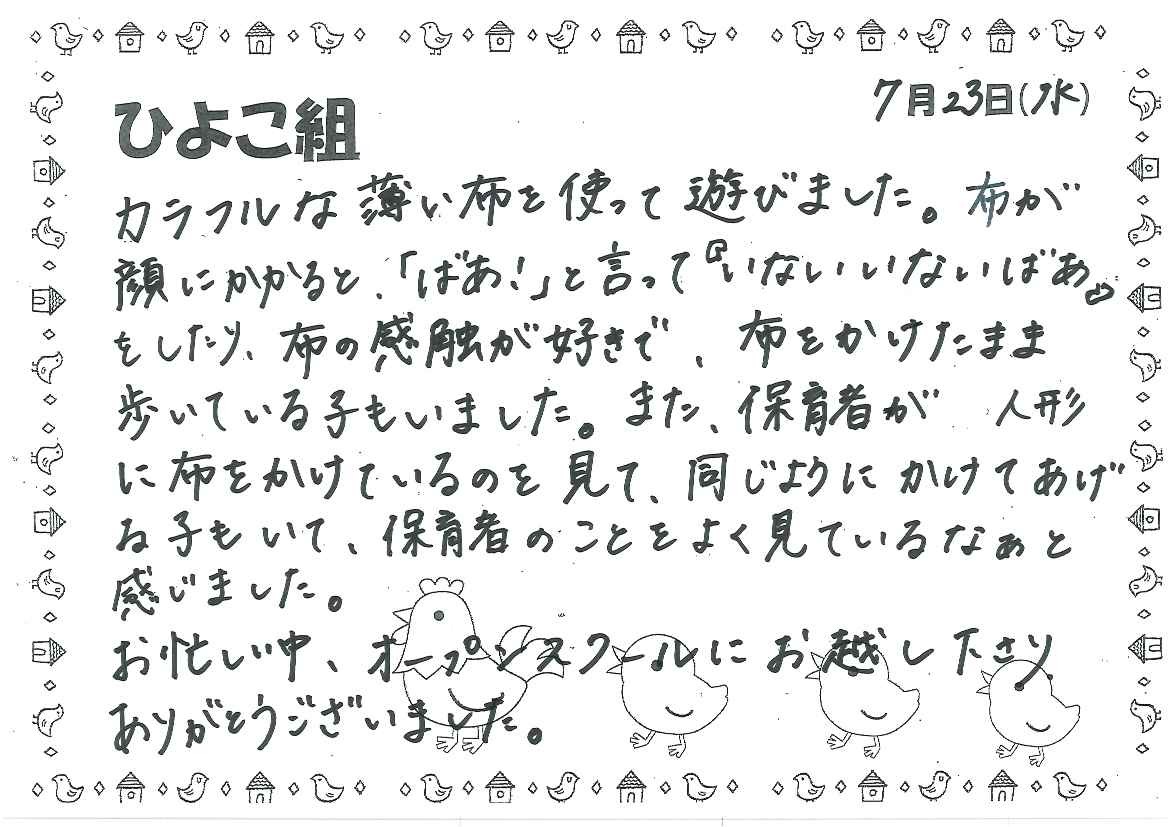 7月23日(水)
ひよこ組
カラフルな薄い布を使って遊びました。布が
顔にかかると、「ばあ!」と言って『いないいないばあ』
をしたり、布の感触が好きで、布をかけたまま
歩いている子もいました。また、保育者が 人形
に布をかけているのを見て、同じようにかけてあげ
る子もいて、保育者のことをよく見ているなぁと
感じました。
お忙しい中、オープンスクールにお越し下さり、
ありがとうございました。